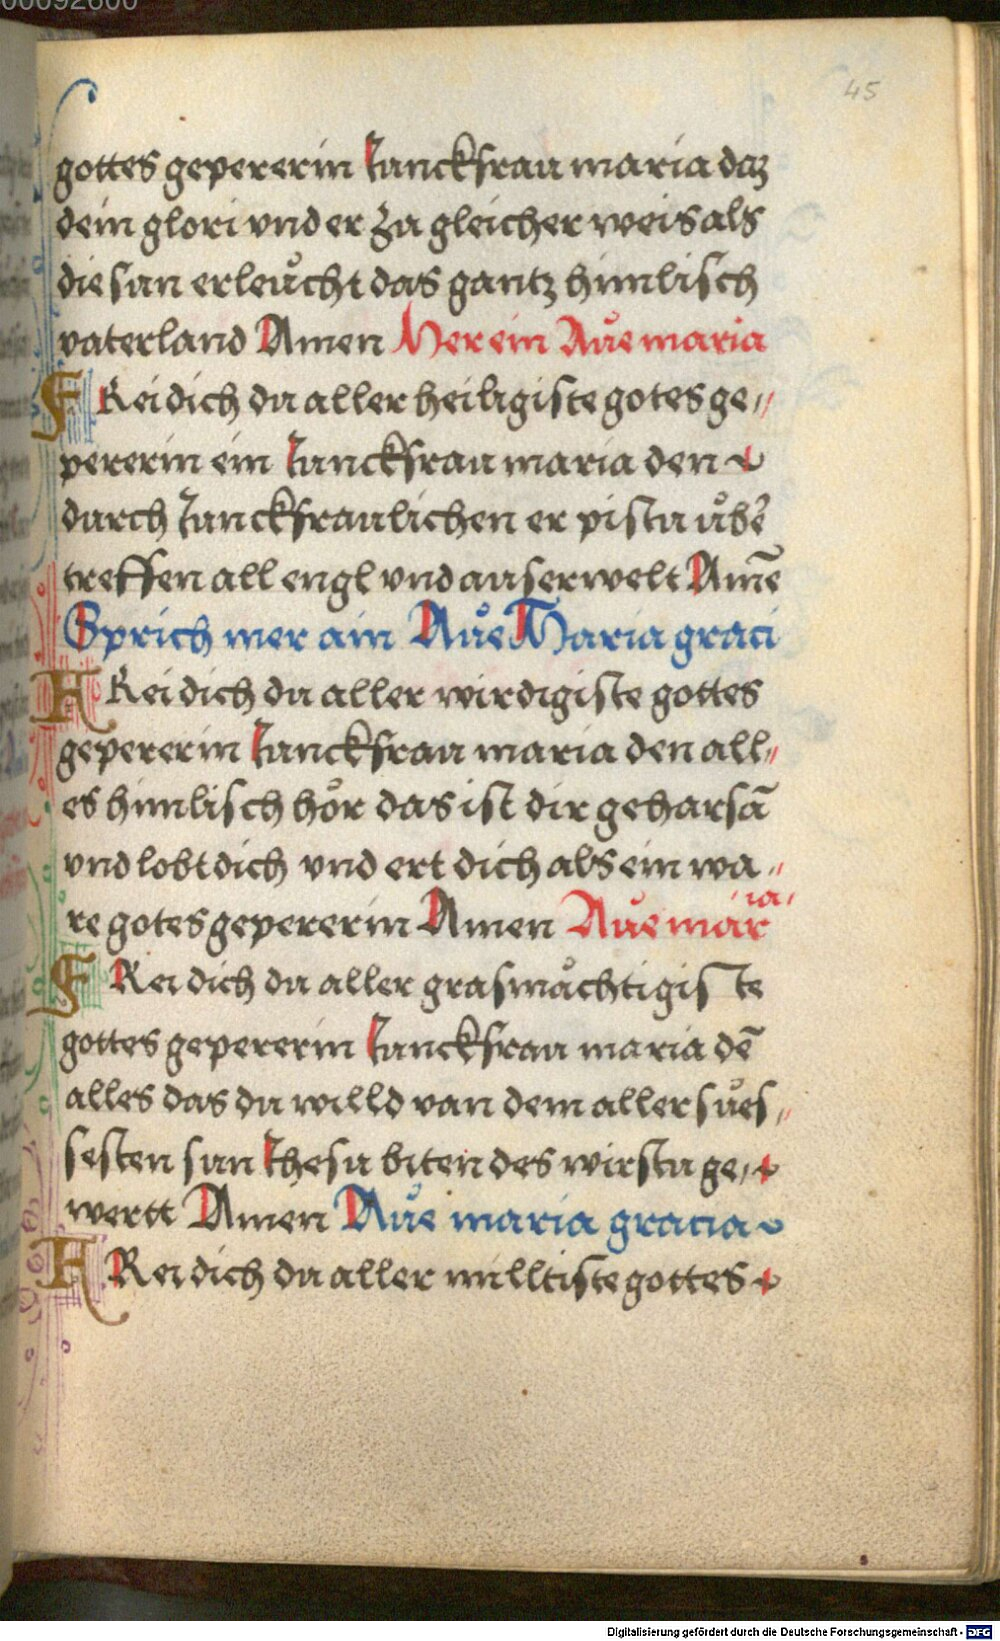 00092600
45
gottes gepererin Junckfrau maria daz
dein glori vnd er zu gleicher weis als
die sun erleůcht das gantz himlisch
vaterland Amen Mer ein Aůe maria
FRei dich du aller heiligiste gotes ge„
pererin ein Junckfrau maria den
durch Junckfraulichen er pistu ůbe͛
treffen all engl vnd auserwelt Amē
Sprich mer ain Aůe Maria graci
FRei dich du aller wirdigiste gottes
gepererin Junckfrau maria den all„
es himlisch hör das ist dir gehorsā
vnd lobt dich vnd ert dich als ein wa„
re gotes gepererin Amen Aůe mar
ia„
FRei dich du aller grasmåchtigis te
gottes gepererin Junckfrau maria dē
alles das du willd van dem aller sůes„
sesten sun Jhesu biten des wirstu ge„
wertt Amen Aůe maria gracia
FRei dich du aller milltiste gottes
Digitalisierung gefördert durch die Deutsche Forschungsgemeinschaft - DFG